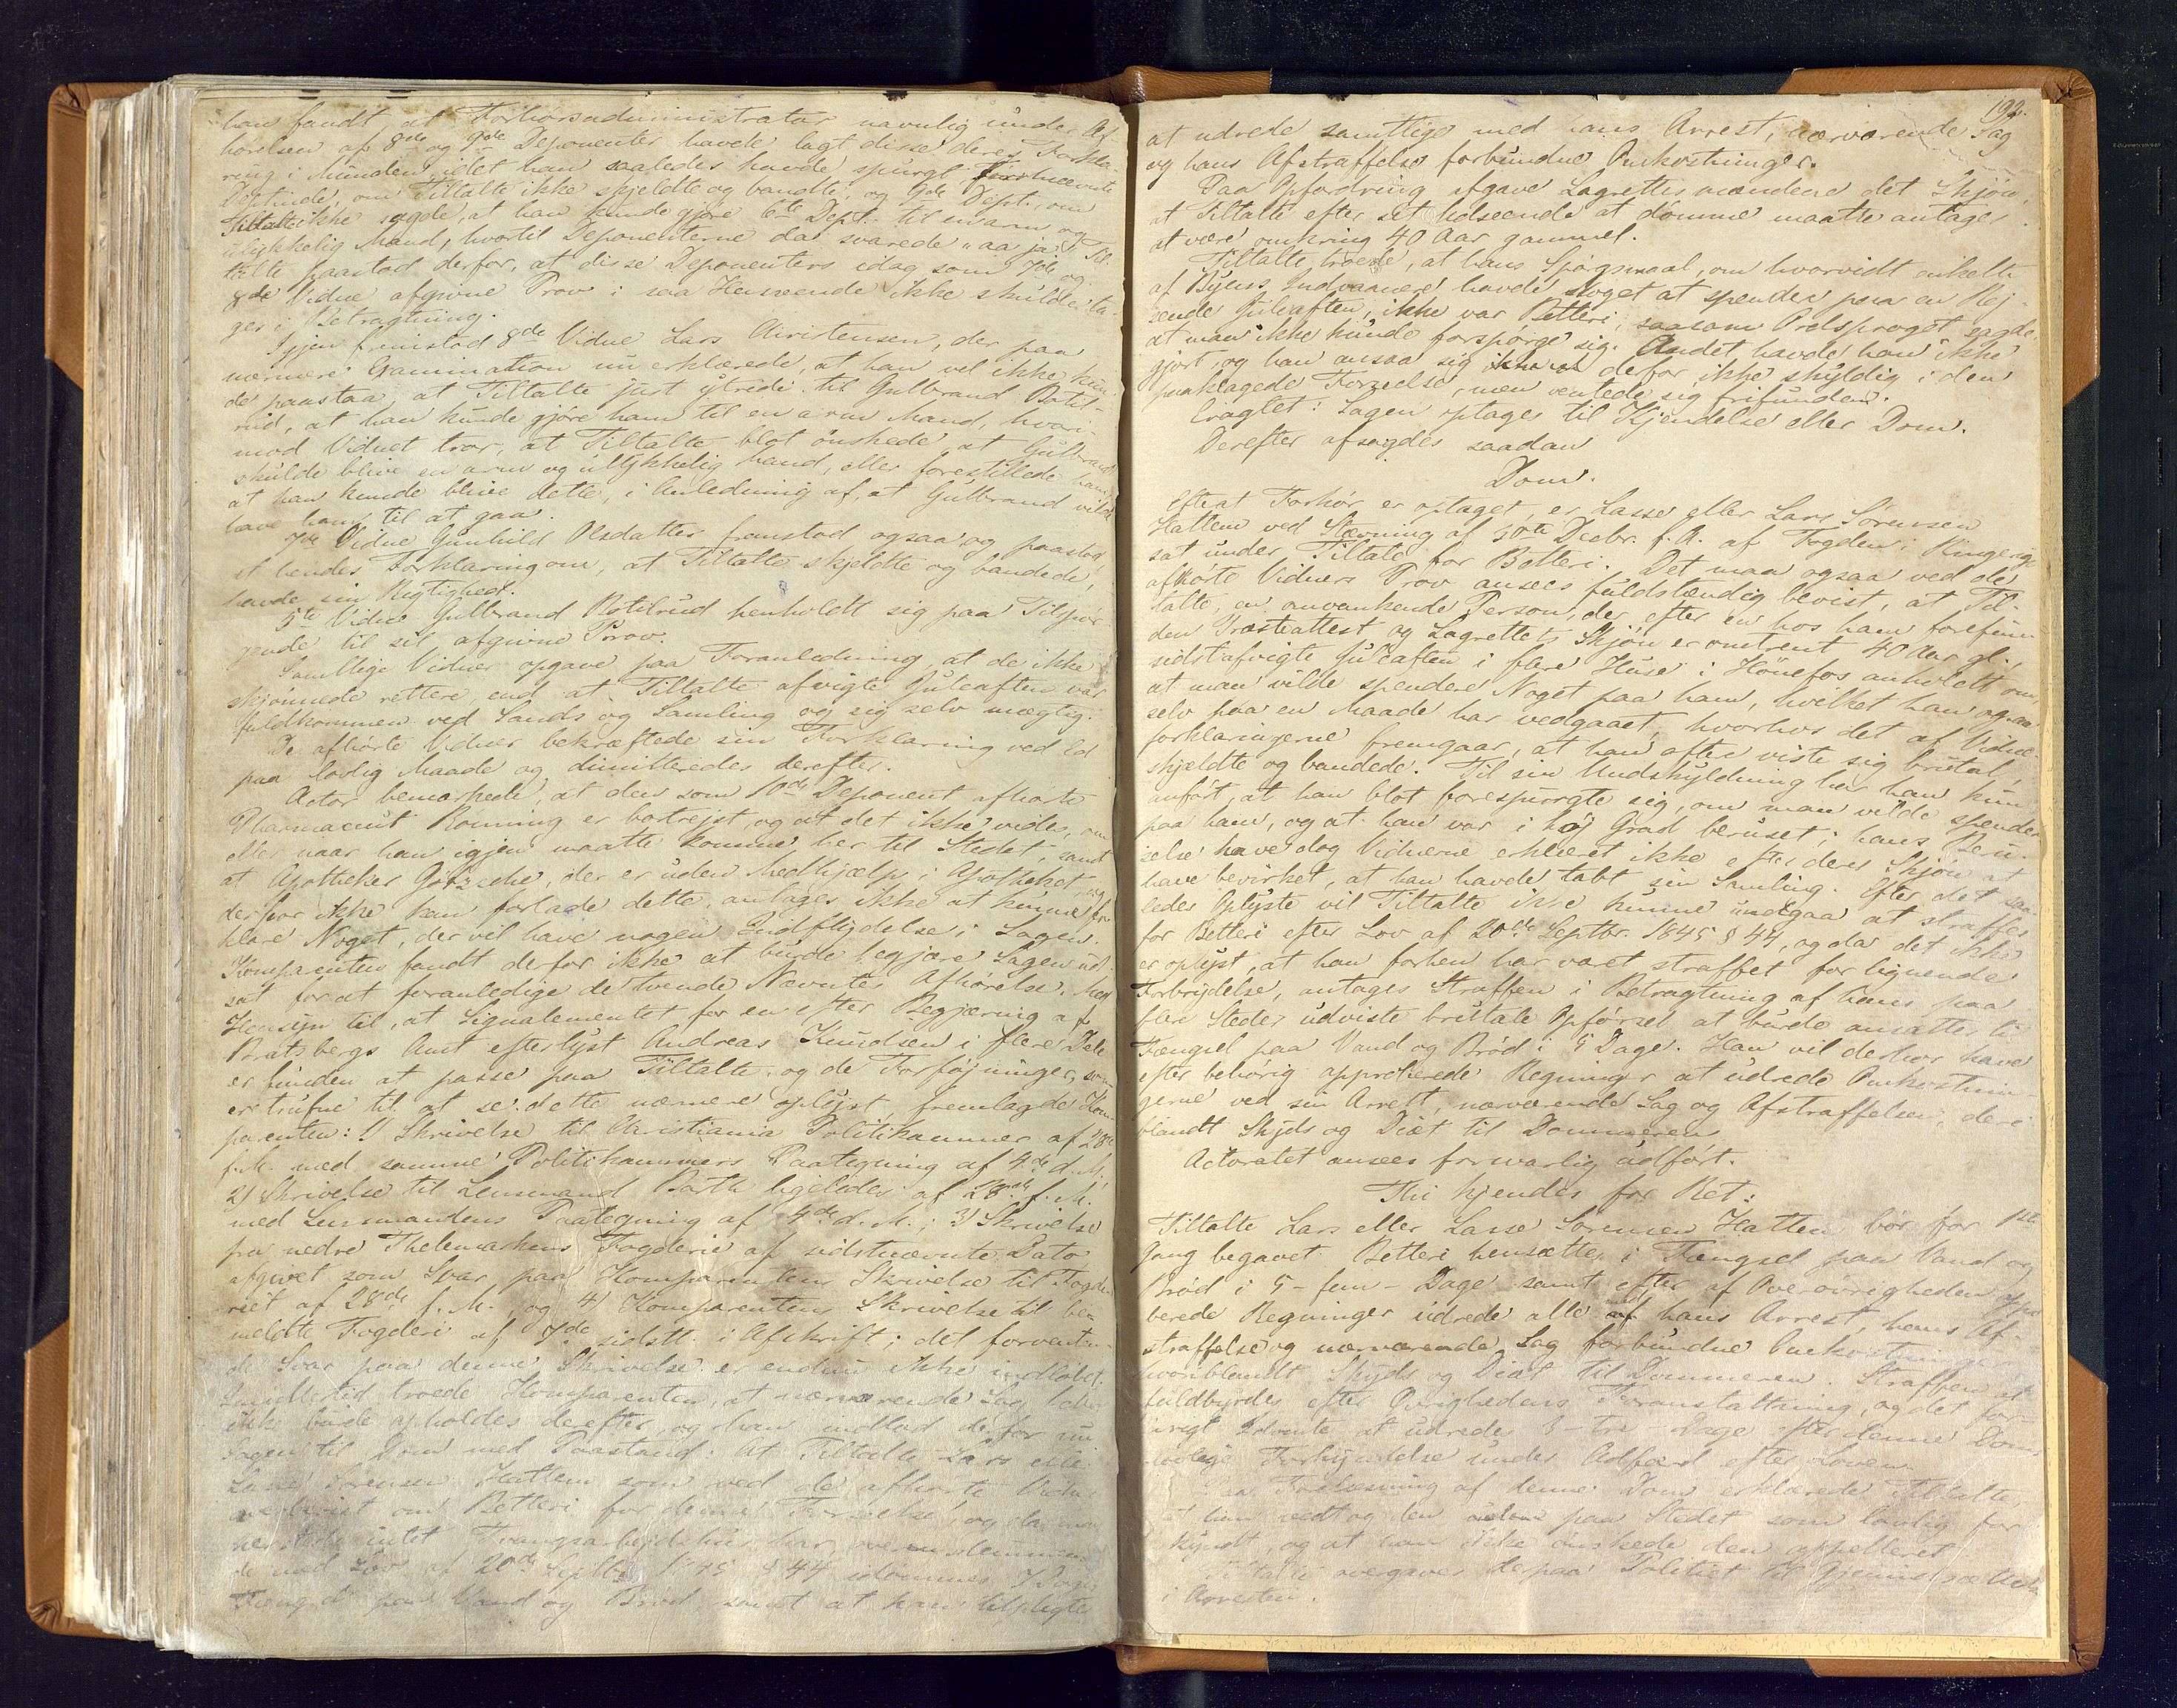 han fandt, at Forhørsadministrator navnlig under Af-
hørelsen af 8de og 9de Deponenter havde lagt disse deres Forkla-
ring i Munden, idet han saaledes havde spurgt førstnævnte
Deptinde, om Tiltalte ikke skjeldte og bandte, og 9de Dept., om
Tiltalte ikke sagde, at han kunde gjøre 6te Dept. til en arm og
ulykkelig Mand, hvortil Deponenterne da svarede "aa ja". Til-
talte paastod derfor, at disse Deponenters idag som 7de og
8de Vidne afgivne Prov i saa Henseende ikke skulde ta-
ges i Betragtning.
Igjen fremstod 8de Vidne Lars Christensen, der paa
nærmere Examination nu erklærede, at han vel ikke kun-
de paastaa, at Tiltalte just ytrede til Gulbrand Botil-
rud, at han kunde gjøre ham til en arm Mand, hvor-
mod Vidnet tror, at Tiltalte blot ønskede, at Gulbrand
skulde blive en arm og ulykkelig Mand, eller forestillede ham,
at han kunde blive dette, i Anledning af, at Gulbrand vilde
have ham til at gaa.
7de Vidne Gunhild Olsdatter fremstod ogsaa og paastod
at hendes Forklaring om, at Tiltalte skjeldte og bandede,
havde sin Rigtighed.
5te Vidne Gulbrand Botilrud henholdt sig paa Tilspør-
gende til sit afgivne Prov.
Samtlige Vidner opgave paa Foranledning, at de ikke
skjønnede rettere end at Tiltalte afvigte Juleaften var
fuldkommen ved Sands og Samling og sig selv mægtig.
De afhørte Vidner bekræftede sin Forklaring ved Ed
paa lovlig Maade og dimitteredes derefter.
Actor bemærkede, at den som 10de Deponent afhørte
Pharmaceut Ronning er bortrejst, og at det ikke vides, om
eller naar han igjen maatte komme her til Stedet, samt
at Apotheker Götzsche, der er uden Medhjælp i Apotheket, og
derfor ikke kan forlade dette, antages ikke at kunne for-
klare Noget, der vil have nogen Indflydelse i Sagen.
Komparenten fandt derfor ikke at burde begjære Sagen ud-
sat for at foranledige de tvende Nævntes Afhørelse. Med
Hensyn til, at Signalementet for en efter Begjæring af
Bratsbergs Amt efterlyst Andreas Knudsen i flere Dele
er funden at passe paa Tiltalte og de Forføjninger, som
ere trufne til at se dette nærmere oplyst, fremlagde Kom-
parenten: 1) Skrivelse til Christiania Politikammer af 28de
f. M. med samme Politikammers Paategning af 4de d. M.
2) Skrivelse til Lensmand Barth ligeledes af 28de f. M.
med Lensmandens Paategning af 4de d. M.; 3) Skrivelse
fra nedre Thelemarkens Fogderi af sidstnævnte Dato
afgivet som Svar paa Komparentens Skrivelse til Fogde-
riet af 28de f. M., og 4) Komparentens Skrivelse til be-
meldte Fogderi af 7de sidstl. i Afskrift; det forvente-
de Svar paa denne Skrivelse er endnu ikke indløbet.
Imidlertid troede Komparenten, at nærværende Sag
ikke burde opholdes derefter, og han indlod derfor nu
Sagen til Dom med Paastand: At Tiltalte Lars eller
Lasse Sørensen Hatlem som ved de afhørte Vidner
overbevist om Betleri for denne Forseelse, og da man
her intet Tvangsarbejdshus har, overensstemmen-
de med Lov af 20de Septbr. 1845 § 44 idømmes Fange
Fængsel paa Vand og Brød samt at han tilpligtes
192.
at udrede samtlige med hans Arrest, nærværende Sag
og hans Afstraffelse forbundne Omkostninger.
Paa Opfordring afgave Lagrettesmændene det Skjøn,
at Tiltalte efter sit Udseende at dømme maatte antages
at være omkring 40 Aar gammel.
Tiltalte troede, at hans Spørgsmaal, om hvorvidt enkelte
af Byens Indvaanere havde Noget at spendere paa en Rej-
sende Juleaften, ikke var Betleri, saasom Ordsproget sagde,
at man ikke kunde forspørge sig. Andet havde han ikke
gjort, og han ansaa sig derfor ikke skyldig i den
paaklagede Forseelse, men ventede sig frifunden.
Eragtet: Sagen optages til Kjendelse eller Dom.
Derefter afsagdes saadan
Dom.
Efterat Forhør er optaget, er Lasse eller Lars Sørensen
Hatlem ved Stevning af 30te Decbr. f. A. af Fogden i Ringerige
sat under Tiltale for Betleri. Det maa ogsaa ved de
afhørte Vidners Prov ansees fuldstændig bevist, at Til-
talte, en omvankende Person, der efter en hos ham forefun-
den Præsteattest og Lagrettets Skjøn er omtrent 40 Aar gl.,
sidstafvigte Juleaften i flere Huse i Hönefos anholdt om,
at man vilde spendere Noget paa ham, hvilket han ogsaa
selv paa en Maade har vedgaaet, hvorhos det af Vidne-
forklaringerne fremgaar, at han ofte viste sig brutal,
skjældte og bandede. Til sin Undskyldning har han kun
anført, at han blot forespurgte sig, om man vilde spendere
paa ham, og at han var i høj Grad beruset; hans Beru-
selse have dog Vidnerne erklæret ikke efter deres Skjøn at
have bevirket, at han havde tabt sin Samling. Efter det saa-
ledes Oplyste vil Tiltalte ikke kunne undgaa at straffes
for Betleri efter Lov af 20de Septbr. 1845 § 44, og da det ikke
er oplyst, at han forhen har været straffet for lignende
Forbrydelse, antages Straffen i Betragtning af hans paa
flere Steder udviste brutale Opførsel at burde ansættes til
Fængsel paa Vand og Brød i 5 Dage. Han vil derhos have
efter behørig approberede Regninger at udrede Omkostnin-
gerne ved sin Arrest, nærværende Sag og Afstraffelsen, deri-
blandt Skyds og Diæt til Dommeren.
Actoratet ansees forsvarlig udført.
Thi kjendes for Ret:
Tiltalte Lars eller Lasse Sørensen Hatlem bør for 1ste
Gang begaaet Betleri hensættes i Fængsel paa Vand og
Brød i 5 - fem - Dage samt efter af Overøvrigheden appro-
berede Regninger udrede alle af hans Arrest, hans Af-
straffelse og nærværende Sag forbundne Omkostninger,
hvoriblandt Skyds og Diæt til Dommeren. Straffen at
fuldbyrdes efter Øvrighedens Foranstaltning, og det for-
øvrigt Idømte at udredes 3 - tre - Dage efter denne Doms
lovlige Forkyndelse under Adfærd efter Loven.
Paa Forelæsning af denne Dom erklærede Tiltalte,
at han vedtog den paa Stedet som lovlig for-
kyndt, og at han ikke ønskede den appelleret.
Tiltalte overgaves derpaa Politiet til Gjeninds
i Arresten.